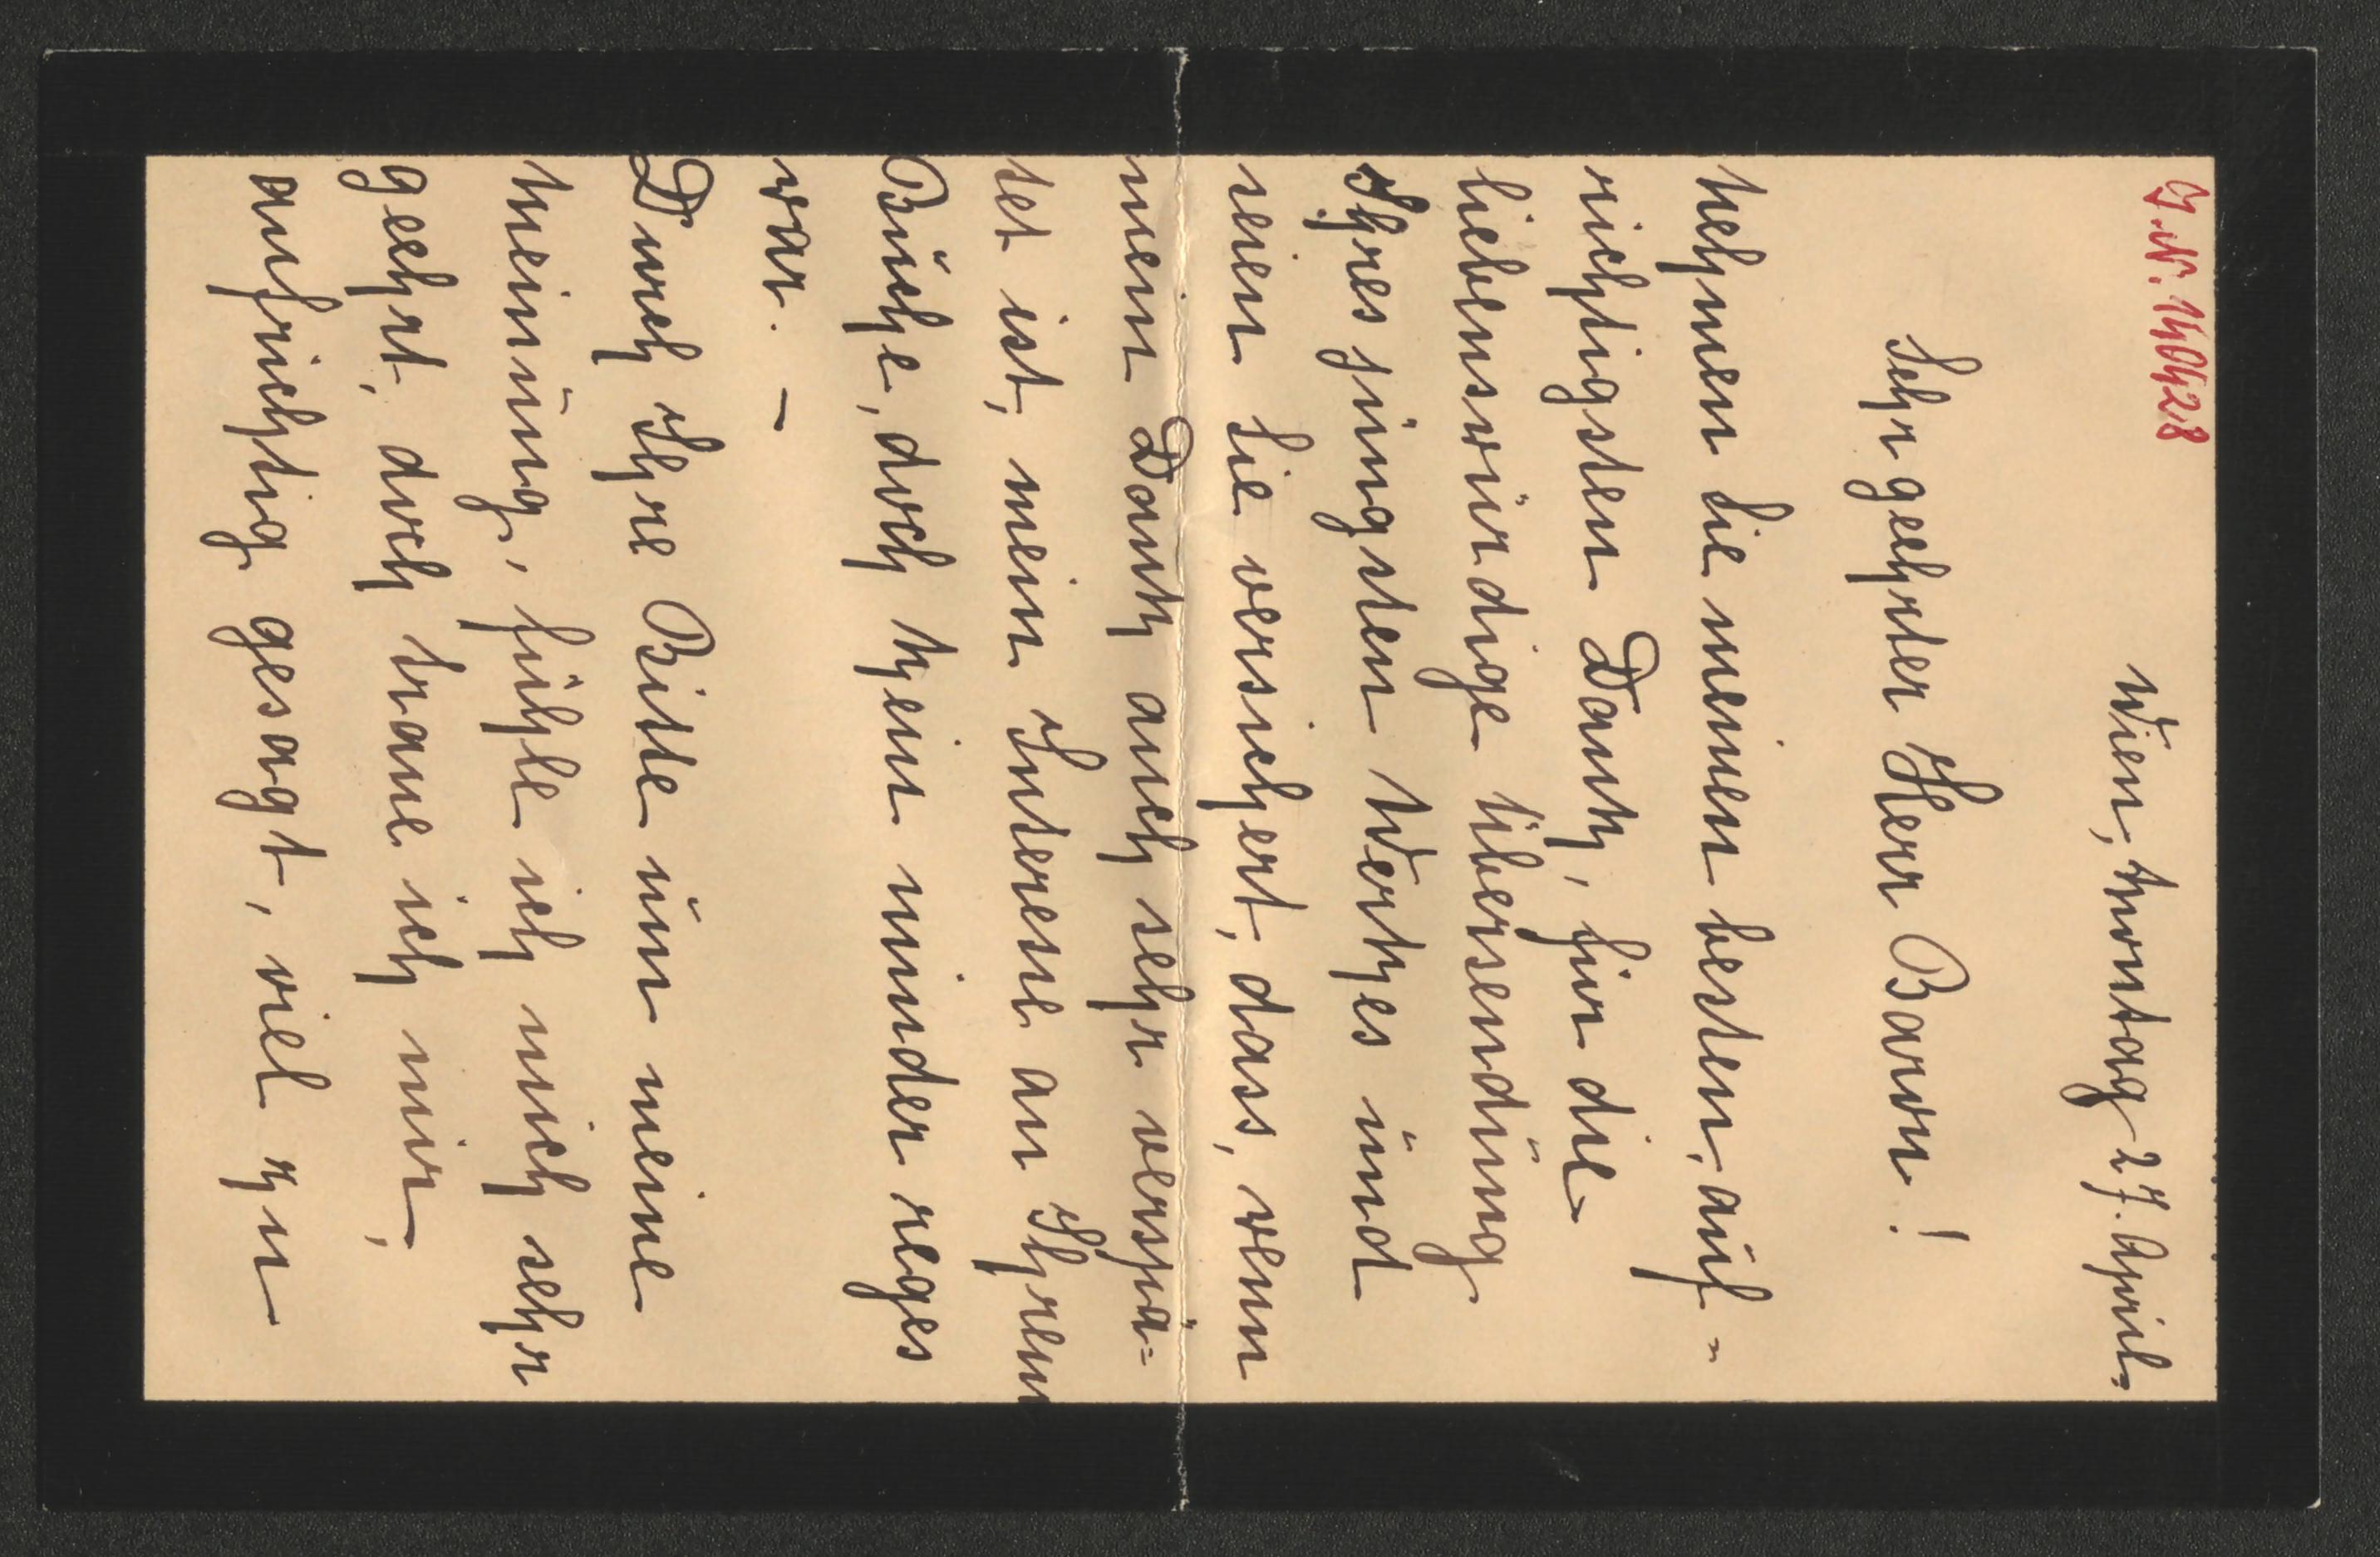 J.N. 140428
Wien, Montag 27. April.
Sehr geehrter Herr Baron!
Nehmen Sie meinen besten, auf=
richtigsten Dank, für die
liebenswürdige Übersendung
Ihres jüngsten Werkes und
seien Sie versichert, dass, wenn
mein Dank auch sehr verspä=
tet ist, mein Interesse an Ihrem
Buche, doch kein minder reges
war. –
Durch Ihre Bitte um meine
Meinung, fühle ich mich sehr
geehrt, doch traue ich mir,
aufrichtig gesagt, viel zu